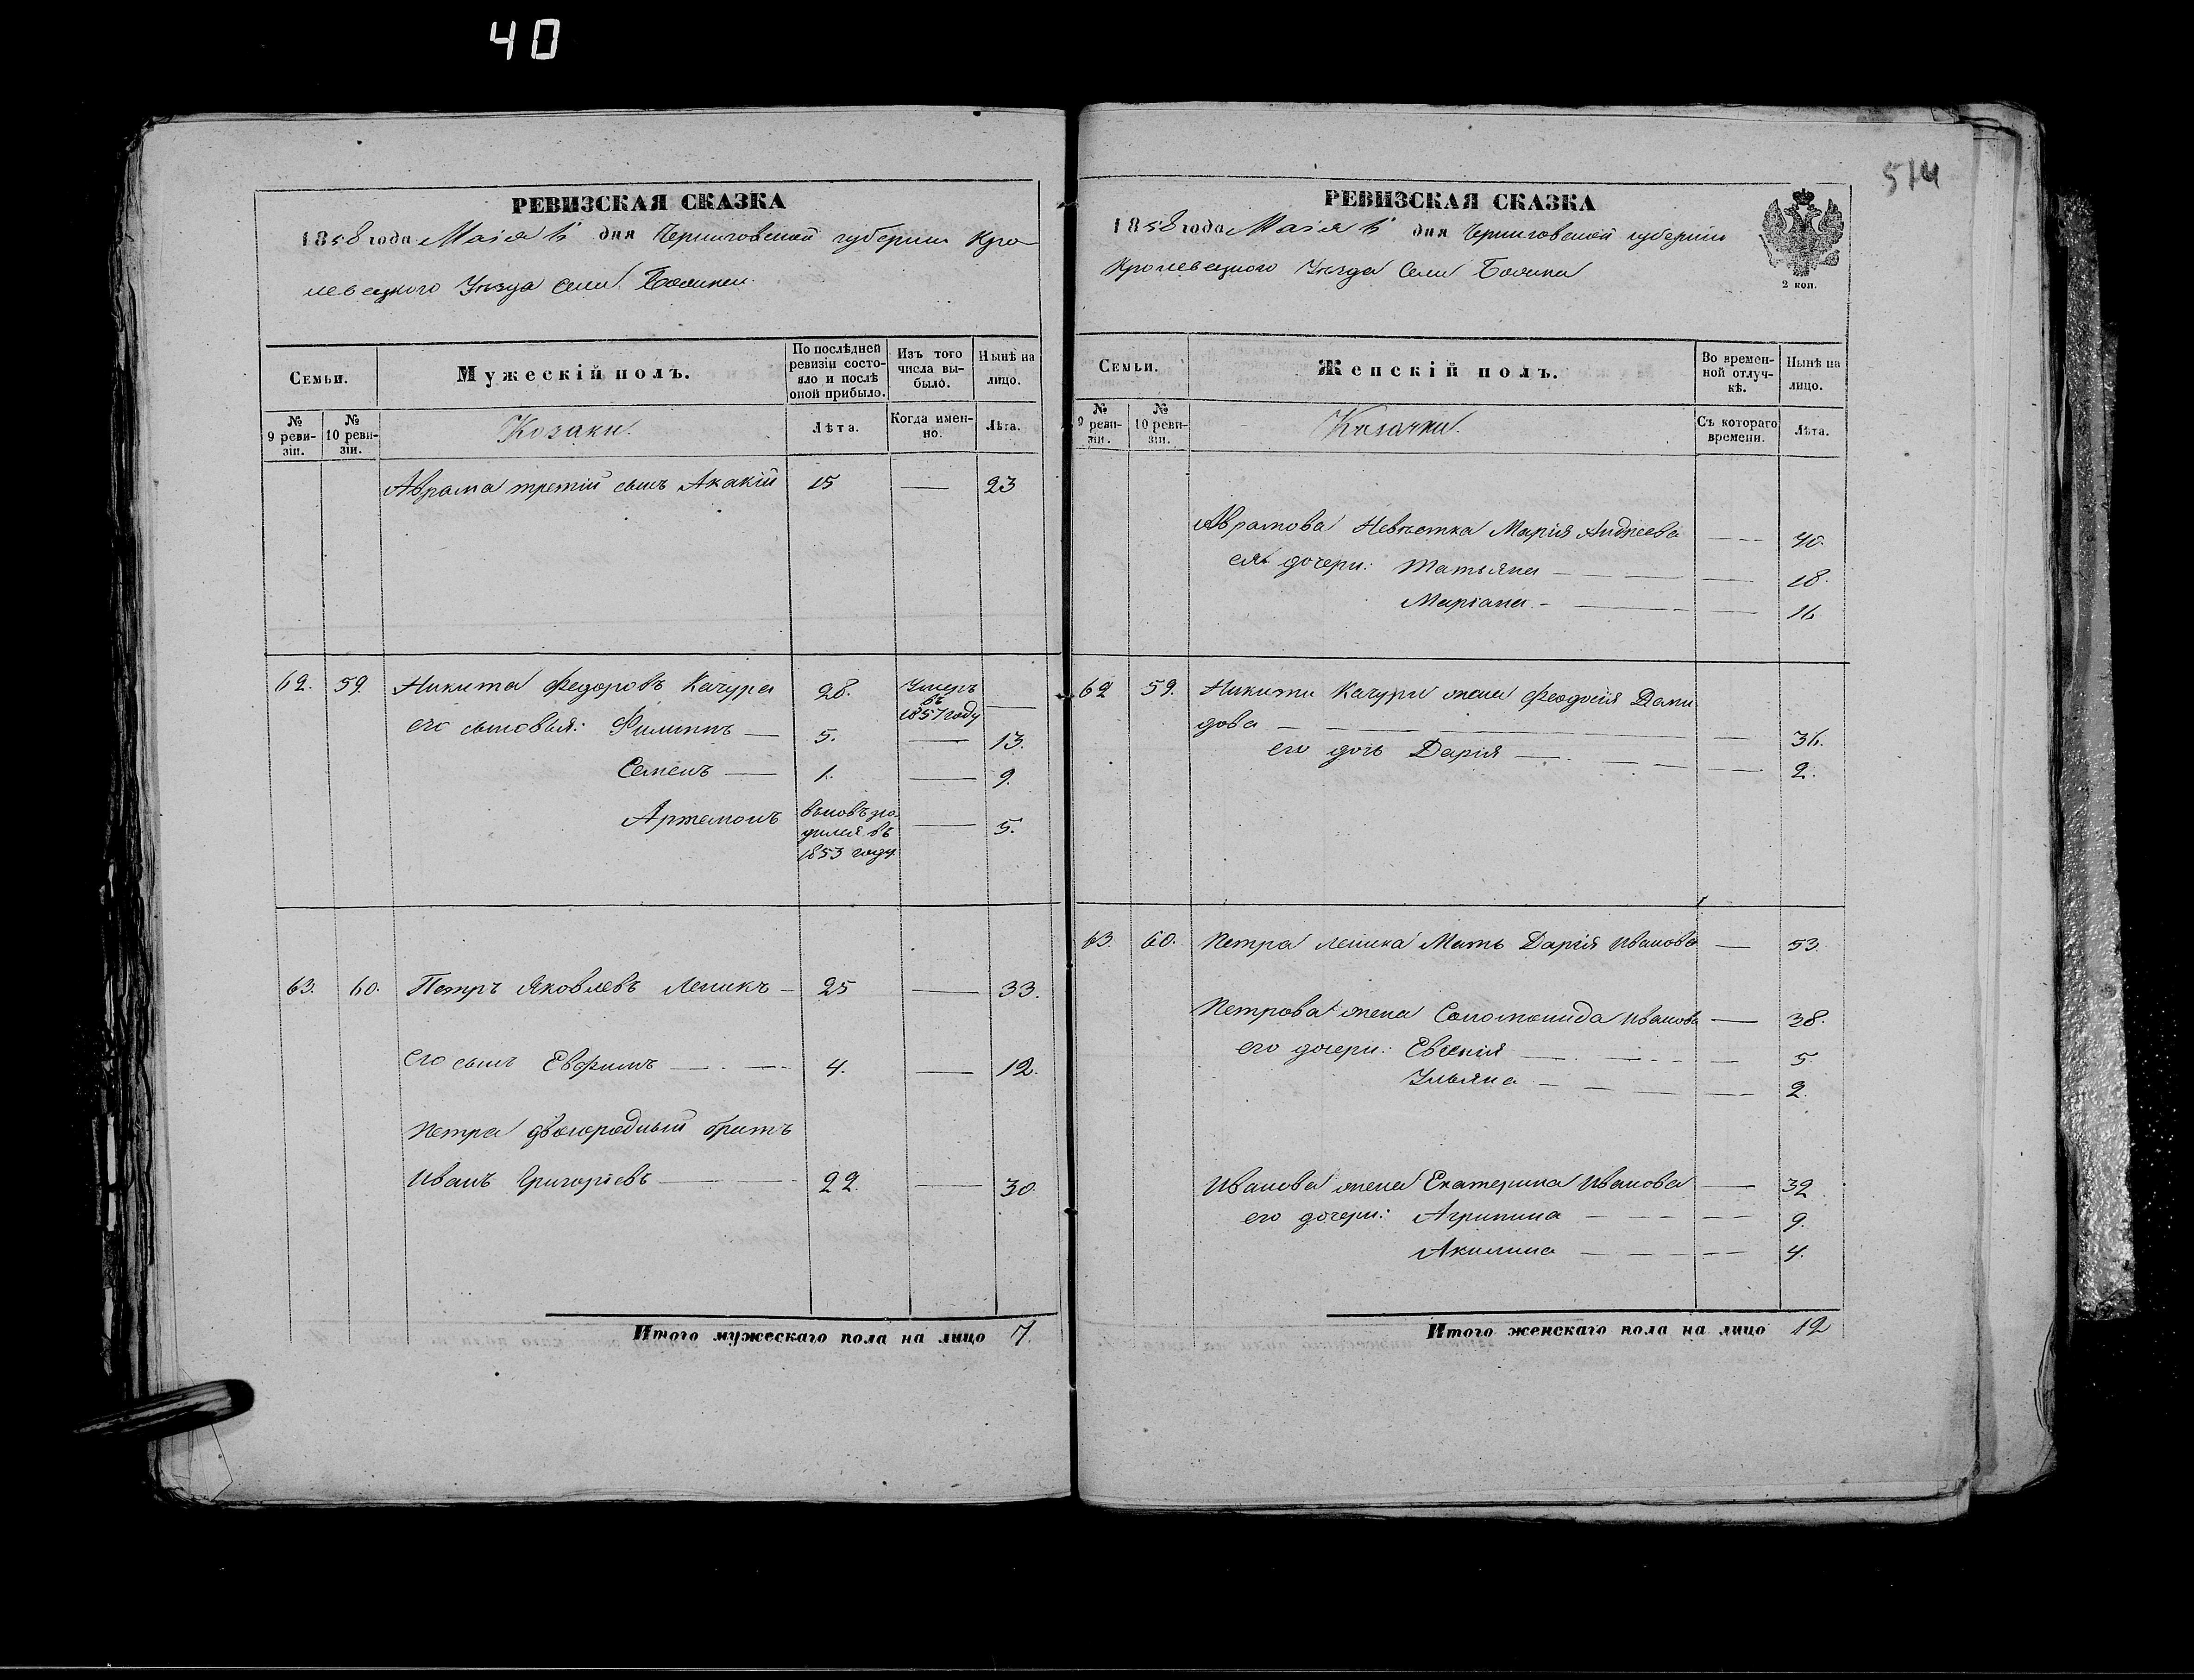 40
514
РЕВИЗСКАЯ СКАЗКА
1858 года Маія 6 дня Черниговской губерніи Кро
левецкого Уѣзда Села
Семьи.
Мужескій полъ.
По послѣдней ревизіи состо-
яло и послѣ
оной прибыло.
Изъ того
числа вы-
было.
Нынѣ на
лицо.
№
9 реви-
зіи.
№
10 реви-
зіи.
Козаки.
Лѣта.
Когда имен-
но.
Лѣта.
Аврама третій сынъ Акакій 15 — 23
62. 59. Никита Федоровъ Качура 28. Умеръ
въ
1857 году —
его сыновья: Филиппъ — 5. — 13.
Семенъ — 1. — 9.
Артемонъ вновь ро
дился въ
1853 году — 5.
63. 60. Петръ Яковлевъ Лепикъ — 25 — 33.
его сынъ Евфимъ — 4. — 12.
Петра двоюродный братъ
Иванъ Григорьевъ — 22. — 30.
Итого мужескаго пола на лицо 7.
РЕВИЗСКАЯ СКАЗКА
1858 года Маія 6 дня Черниговской губерніи
Кролевецкого Уѣзда Села
2 коп.
Семьи.
Женскій полъ.
Во времен-
ной отлуч-
кѣ.
Нынѣ на
лицо.
№
9 реви-
зіи.
№
10 реви-
зіи.
Козачки.
Съ котораго
времени.
Лѣта.
Аврамова Невѣстка Марія Андреева — 40.
ея дочери: Татьяна — 18.
Маріана — 16.
62 59. Никиты Качуры жена Феодосія Деми
дова — 36.
его дочь Дарія — 2.
63. 60. Петра Лепика Мать Дарія Иванова — 53.
Петрова жена Соломонида Иванова — 38.
его дочери: Евгенія — 5.
Ульяна — 2.
Иванова жена Екатерина Иванова — 32
его дочери: Агрипина — 9.
Акилина — 4.
Итого женскаго пола на лицо 12